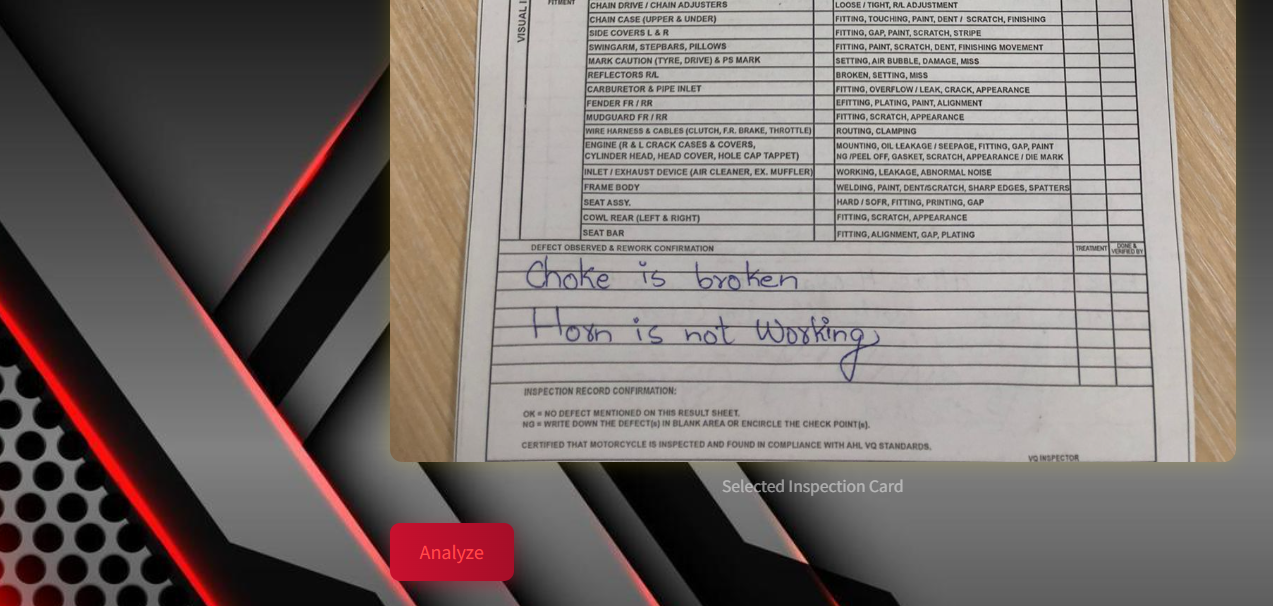 VISUAL I
FITMENT
CHAIN DRIVE / CHAIN ADJUSTERS LOOSE / TIGHT, R/L ADJUSTMENT
CHAIN CASE (UPPER & UNDER) FITTING, TOUCHING, PAINT, DENT / SCRATCH, FINISHING
SIDE COVERS L & R FITTING, GAP, PAINT, SCRATCH, STRIPE
SWINGARM, STEPBARS, PILLOWS FITTING, PAINT, SCRATCH, DENT, FINISHING MOVEMENT
MARK CAUTION (TYRE, DRIVE) & PS MARK SETTING, AIR BUBBLE, DAMAGE, MISS
REFLECTORS R/L BROKEN, SETTING, MISS
CARBURETOR & PIPE INLET FITTING, OVERFLOW / LEAK, CRACK, APPEARANCE
FENDER FR / RR EFITTING, PLATING, PAINT, ALIGNMENT
MUDGUARD FR / RR FITTING, SCRATCH, APPEARANCE
WIRE HARNESS & CABLES (CLUTCH, F.R. BRAKE, THROTTLE) ROUTING, CLAMPING
ENGINE (R & L CRACK CASES & COVERS, MOUNTING, OIL LEAKAGE / SEEPAGE, FITTING, GAP, PAINT
CYLINDER HEAD, HEAD COVER, HOLE CAP TAPPET) NG /PEEL OFF, GASKET, SCRATCH, APPEARANCE / DIE MARK
INLET / EXHAUST DEVICE (AIR CLEANER, EX. MUFFLER) WORKING, LEAKAGE, ABNORMAL NOISE
FRAME BODY WELDING, PAINT, DENT/SCRATCH, SHARP EDGES, SPATTERS
SEAT ASSY. HARD / SOFR, FITTING, PRINTING, GAP
COWL REAR (LEFT & RIGHT) FITTING, SCRATCH, APPEARANCE
SEAT BAR FITTING, ALIGNMENT, GAP, PLATING
DEFECT OBSERVED & REWORK CONFIRMATION TREATMENT DONE & VERIFIED BY
Choke is broken
Horn is not Working,
INSPECTION RECORD CONFIRMATION:
OK = NO DEFECT MENTIONED ON THIS RESULT SHEET.
NG = WRITE DOWN THE DEFECT(s) IN BLANK AREA OR ENCIRCLE THE CHECK POINT(s).
CERTIFIED THAT MOTORCYCLE IS INSPECTED AND FOUND IN COMPLIANCE WITH AHL VQ STANDARDS.
VQ INSPECTOR
Selected Inspection Card
Analyze